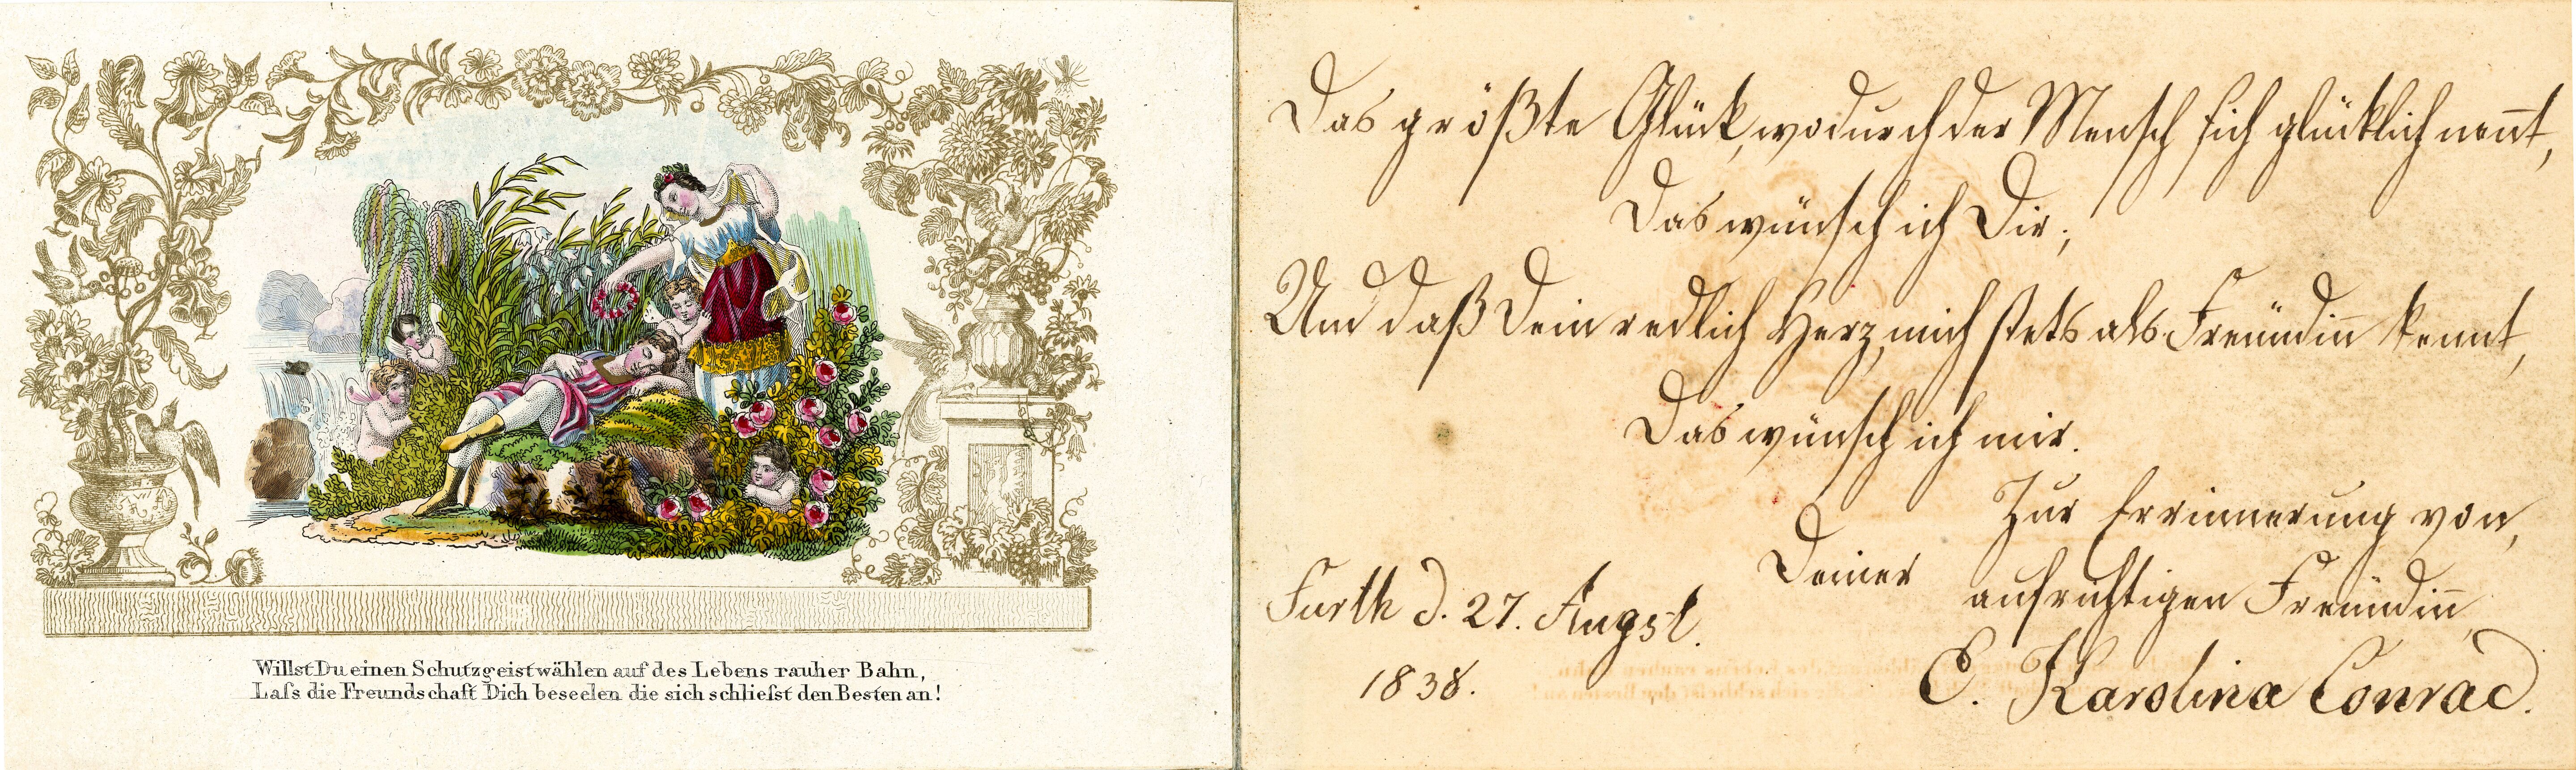 Willst Du einen Schutzgeist wählen auf des Lebens rauher Bahn,
Laſs die Freundschaft Dich beseelen die sich schlieſst den Besten an!
Das größte Glück, wodurch der Mensch sich glücklich nen̄t,
Das wünsch ich Dir;
Um daß Dein redlich Herz, mich stets als Freundin̄ kennt,
Das wünsch ich mir.
Zur Errinnerung von,
Deiner
aufrichtigen Freundin̄,
Furth d. 27. Augst.
1838.
E. Karolina Conrad.